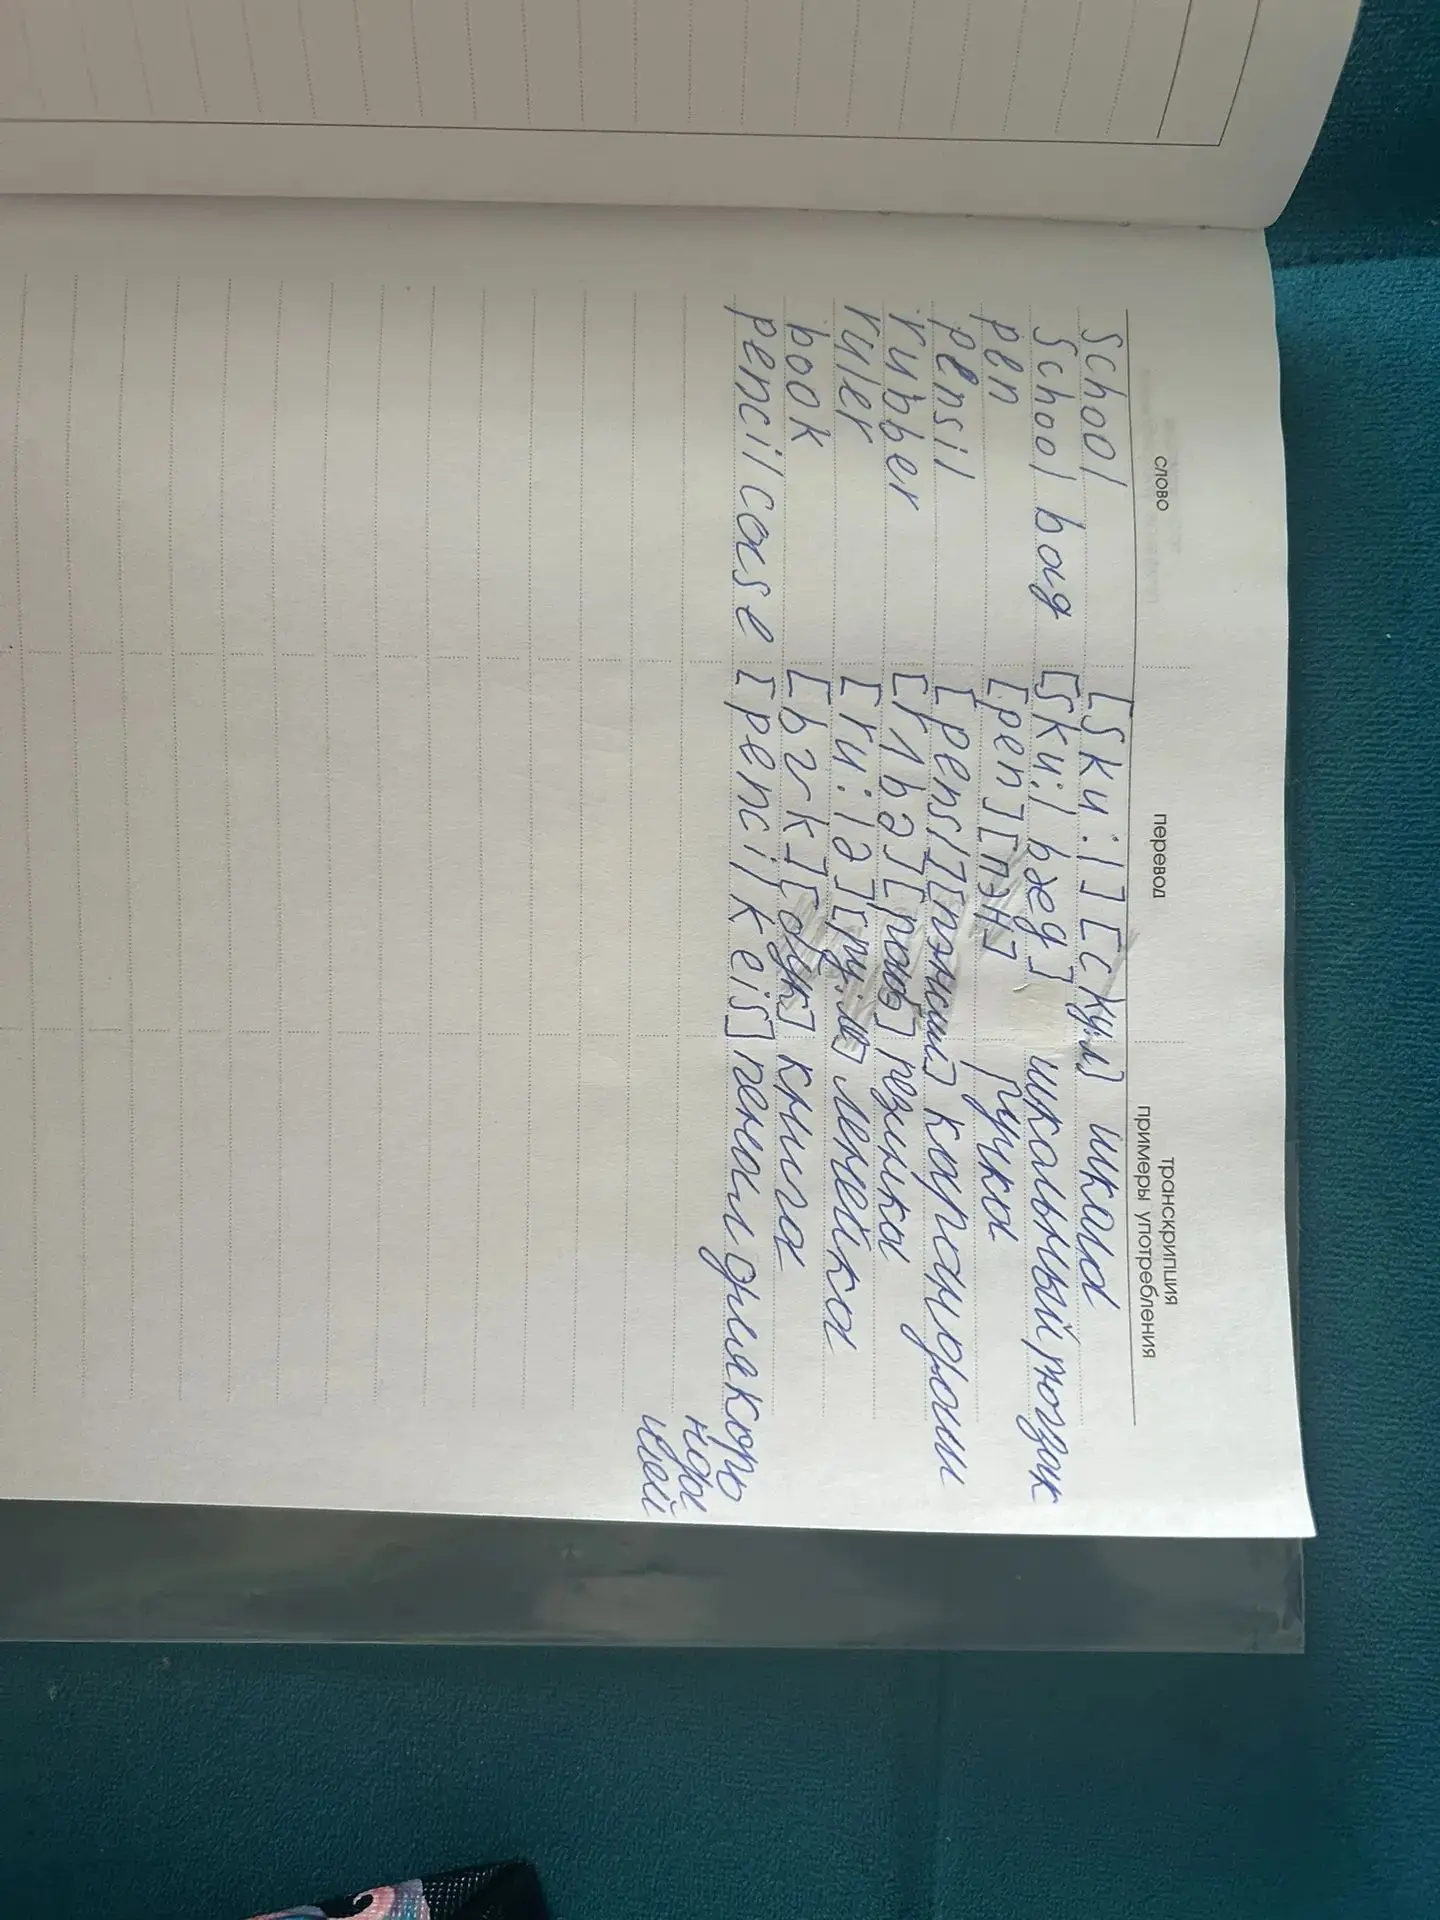 слово перевод транскрипция
примеры употребления
School [sku:l] [скул] школа
School bag [sku:l bæg] школьный рюгзак
pen [pen] [пэн] ручка
pensil [pensl] [пэнсил] карандаш
rubber [rʌbə] [рабэ] резинка
ruler [ru:lə] [ру:лэ] линейка
book [bʊk] [бук] книга
pencil case [pencil keis] пенал для кара
нда
шей